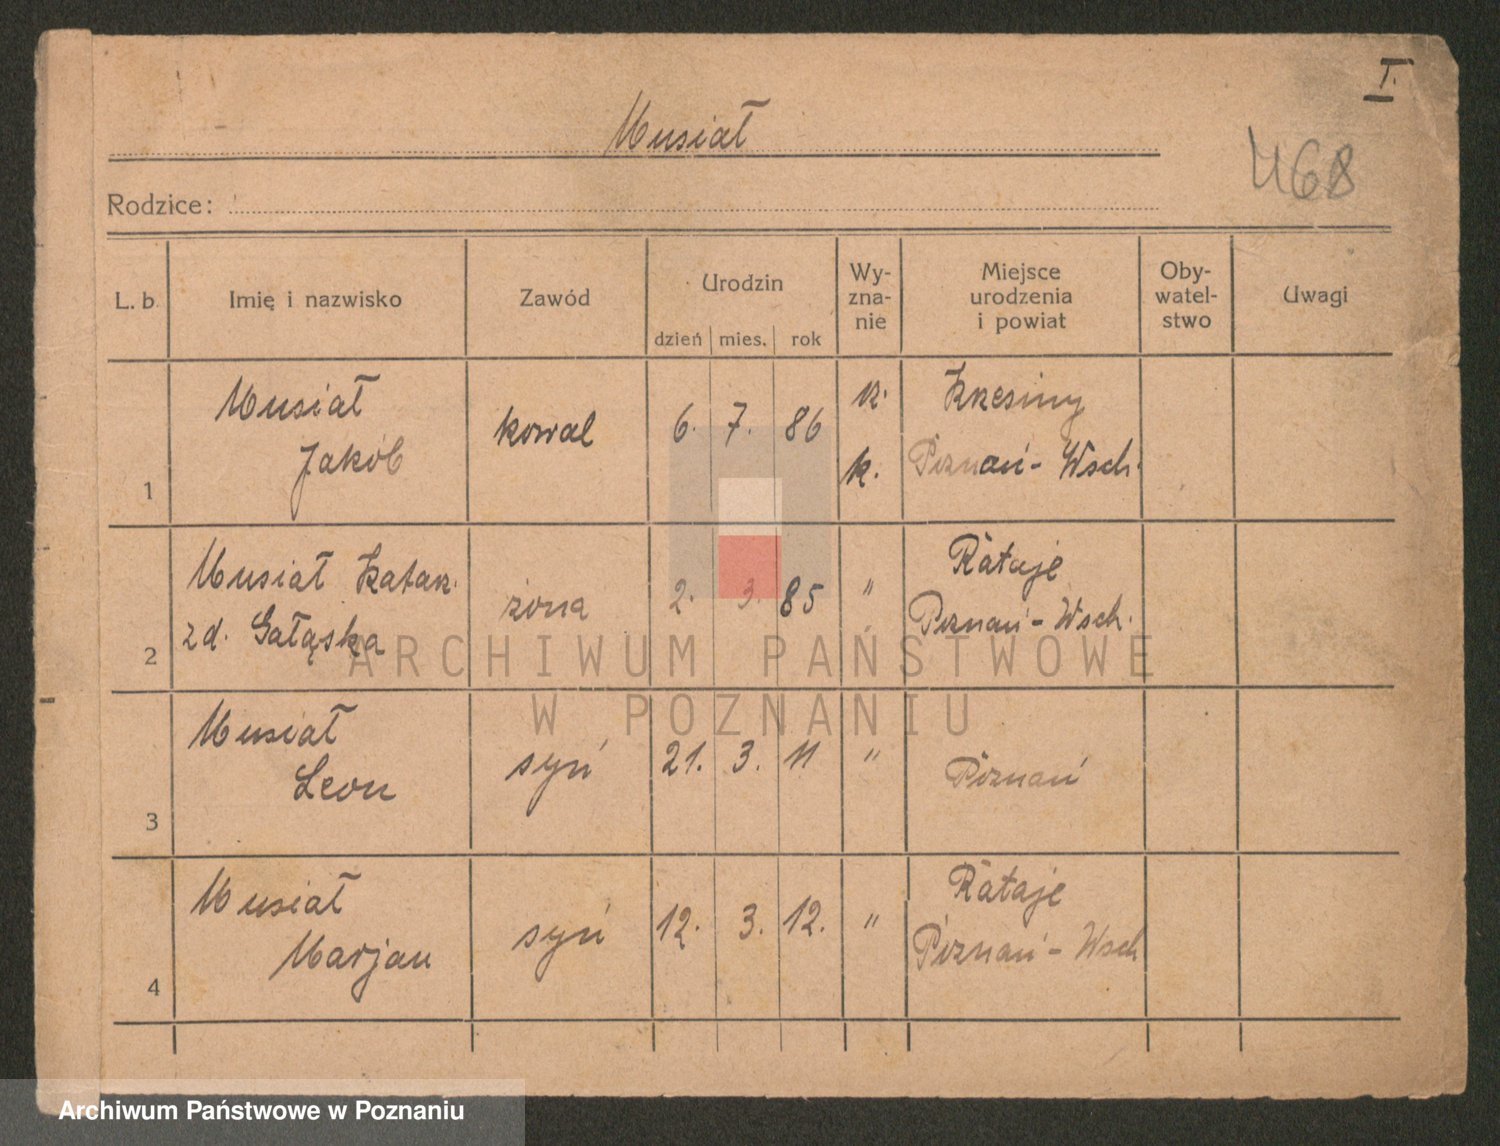 I.
Musiał
468
Rodzice:
L. b. Imię i nazwisko Zawód Urodzin dzień mies. rok Wy-zna-nie Miejsce urodzenia i powiat Oby-watel-stwo Uwagi
Musiał kowal 6. 7. 86 rz. Krzesiny
1 Jakób k. Poznań-Wsch.
Musiał Katarz. żona 2. 3. 85 " Rataje
2 zd. Gałąska Poznań-Wsch.
Musiał syn 21. 3. 11 " Poznań
3 Leon
Musiał syn 12. 3. 12. " Rataje
4 Marjan Poznań-Wsch
ARCHIWUM PAŃSTWOWE
W POZNANIU
Archiwum Państwowe w Poznaniu